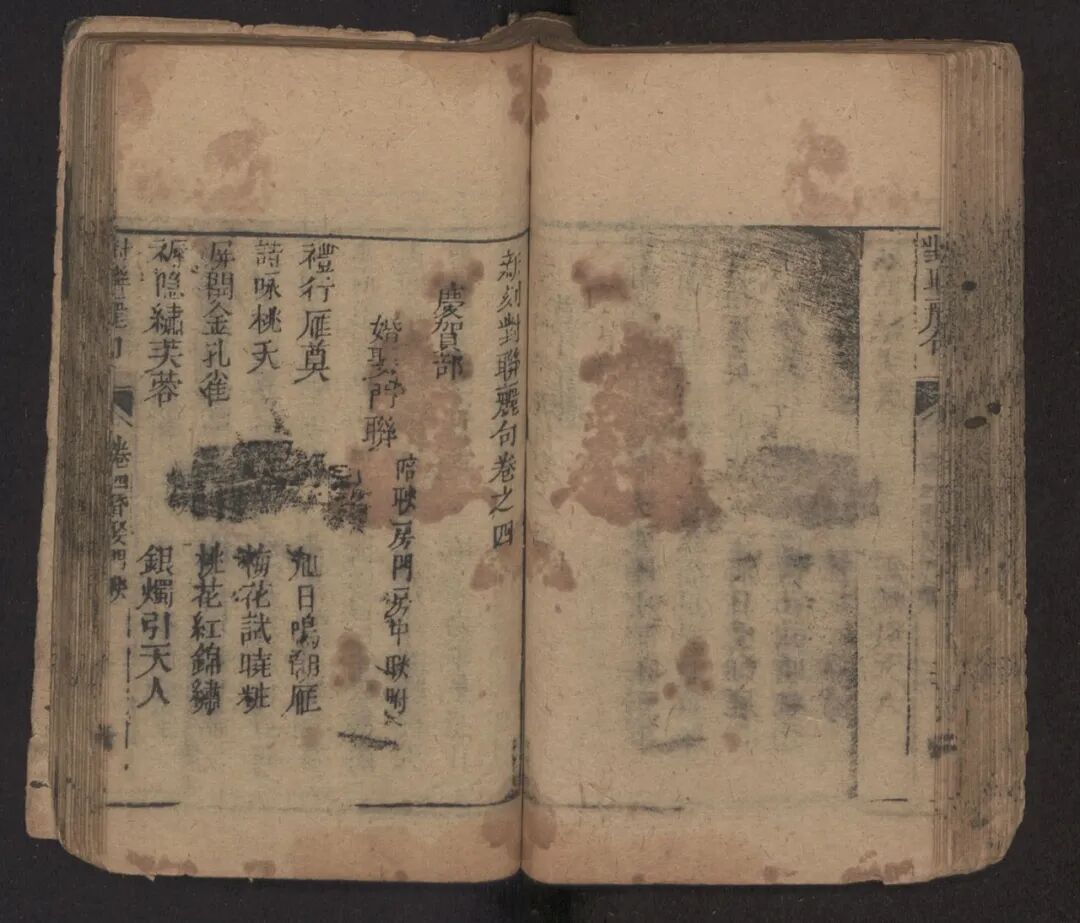 對聯麗句
新刻對聯麗句卷之四
慶賀部
婚娶門聯 房門房中联附
禮行雁奠 旭日鳴朝雁
詩咏桃夭 梅花試曉粧
屏開金孔雀 桃花紅錦繡
褥隱繡芙蓉 銀燭引天人
卷四婚娶門联